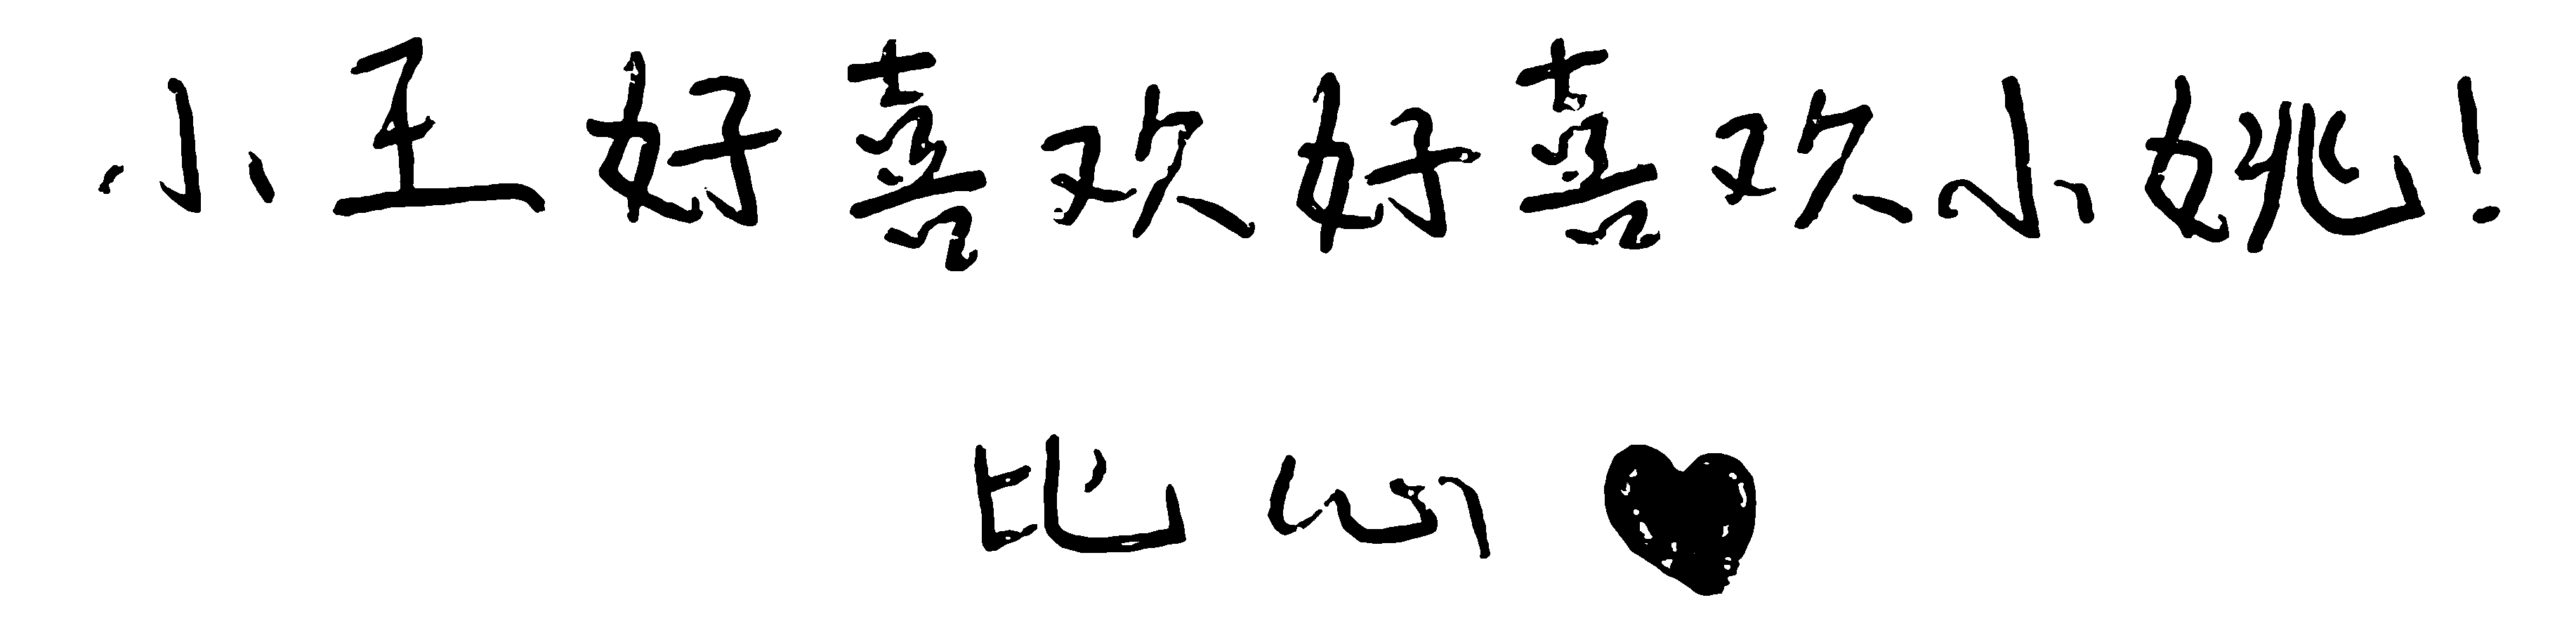 小王好喜欢好喜欢小姚!
比心♥